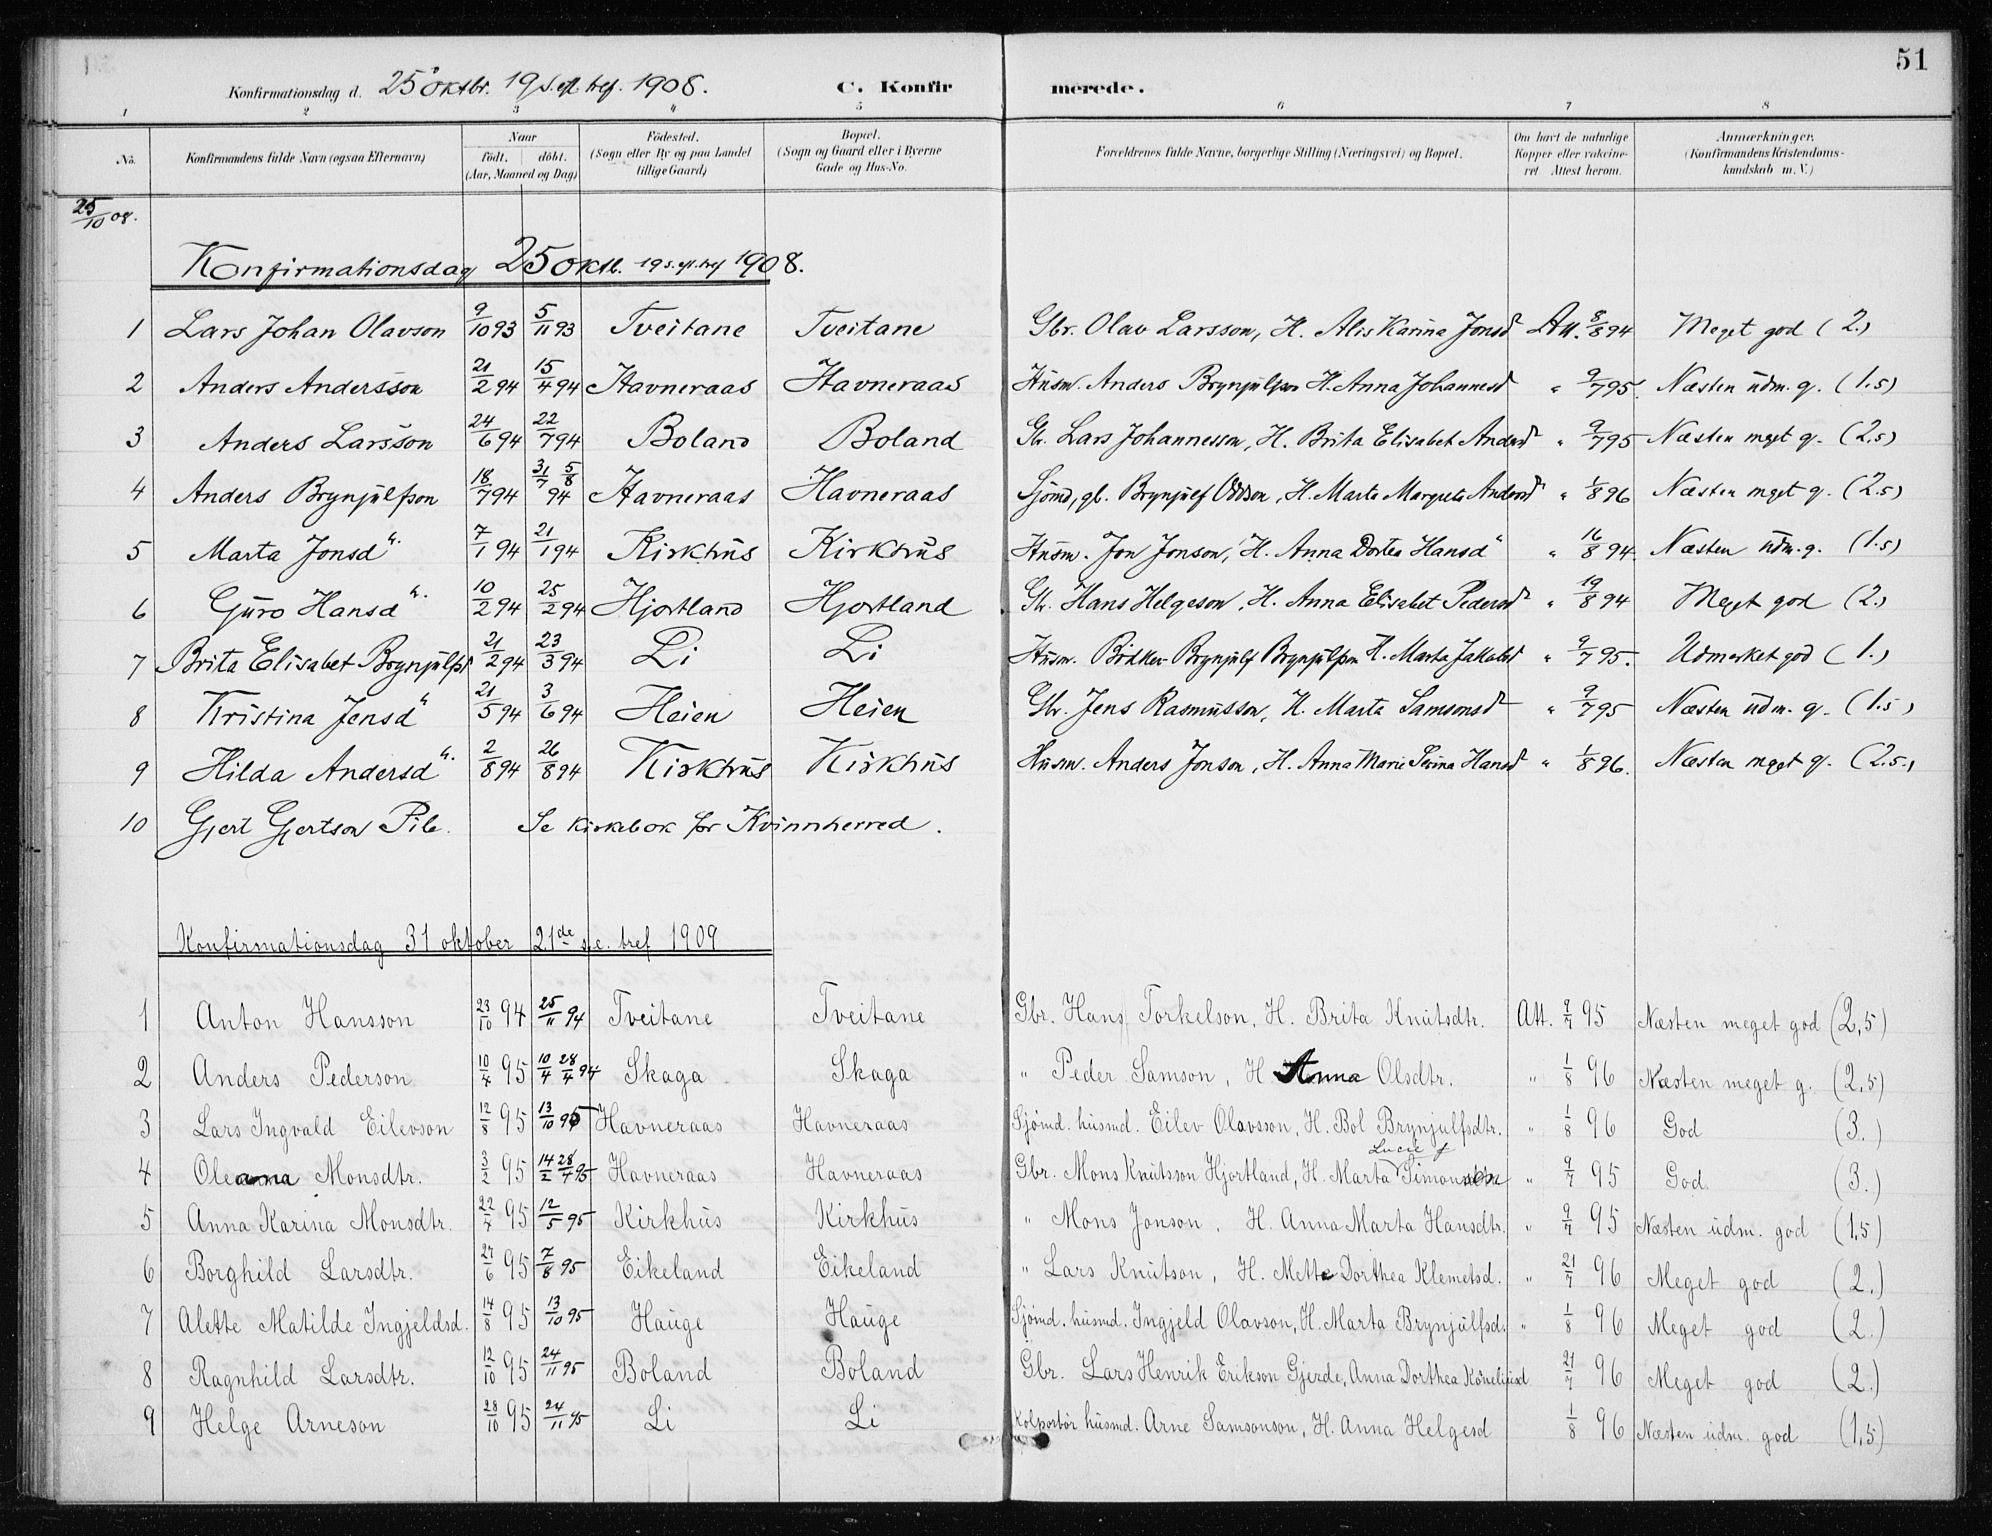 51
Konfirmationsdag d. 25 oktbr. 19 s. eft. tref. 1908. C. Konfirmerede.
1 2 3 4 5 6 7 8
No. Konfirmandens fulde Navn (ogsaa Efternavn) Naar født. døbt. (Aar, Maaned og Dag) Fødested. (Sogn eller By og paa Landet tillige Gaard) Bopæl. (Sogn og Gaard eller i Byerne Gade og Hus-No. Forældrenes fulde Navne, borgerlige Stilling (Næringsvei) og Bopæl. Om havt de naturlige Kopper eller vakcineret Attest herom. Anmærkninger. (Konfirmandens Kristendomskundskab m. V.)
25/10 08.
Konfirmationsdag 25 oktb. 19 s. eft. tref 1908.
1 Lars Johan Olavson 9/10 93 5/11 93 Tveitane Tveitane Gbr. Olav Larsson, H. Alis Karina Jonsd Att. 8/8 94 Meget god (2.)
2 Anders Andersson 21/2 94 15/4 94 Havneraas Havneraas Husm. Anders Brynjulfson H. Anna Johannesd " 9/7 95. Næsten udm. g. (1.5)
3 Anders Larsson 24/6 94 22/7 94 Boland Boland Gb. Lars Johannesson, H. Brita Elisabet Andersd " 9/7 95 Næsten meget g. (2.5)
4 Anders Brynjulfson 18/7 94 31/7 5/8 94 Havneraas Havneraas Sjømd, gb. Brynjulf Oddson, H. Marta Margreta Andersd " 1/8 96 Næsten meget g. (2.5)
5 Marta Jonsd". 7/1 94 21/1 94 Kirkhus Kirkhus Husm. Jon Jonson, H. Anna Dortea Hansd" " 16/8 94. Næsten udm. g. (1.5)
6 Guro Hansd". 10/2 94 25/2 94 Hjortland Hjortland Gb. Hans Helgeson, H. Anna Elisabet Pedersd " 19/8 94 Meget god (2.)
7 Brita Elisabet Brynjulfsd 21/2 94 23/3 94 Li Li Husm. Bødker Brynjulf Brynjulfson H. Marta Jakobsd " 9/7 95. Udmerket god (1.)
8 Kristina Jensd" 21/5 94 3/6 94 Heien Heien Gbr. Jens Rasmusson, H. Marta Samsonsd " 9/7 95 Næsten udm. g. (1.5)
9 Hilda Andersd". 2/8 94 26/8 94 Kirkhus Kirkhus Husm. Anders Jonson, H. Anna Marie Serina Hansd " 1/8 96. Næsten meget g. (2.5.)
10 Gjert Gjertson Pile. Se kirkebok for Kvinnherred.
Konfirmationsdag 31 oktober 21de s. e. tref 1909
1 Anton Hansson 23/10 94 25/11 94 Tveitane Tveitane Gbr. Hans Torkelson, H. Brita Knutsdtr. Att. 9/7 95 Næsten meget god (2,5)
2 Anders Pederson 10/4 95 10/4 28/4 94 Skaga Skaga " Peder Samson, H Anna Olsdtr. " 1/8 96 Næsten meget g. (2,5)
3 Lars Ingvald Eilevson 12/8 95 13/10 95 Havneraas Havneraas Sjømd. husmd. Eilev Olavsson, H. Bol Brynjulfsdtr. " 1/8 96 God (3.)
4 Oleanna Monsdtr. 3/2 95 14/2 28/4 95 Havneraas Havneraas Gbr. Mons Knutsson Hjortland, H. Marta Lucie f Simonsen " 9/7 95 God. (3.)
5 Anna Karina Monsdtr. 22/4 95 12/5 95 Kirkhus Kirkhus " Mons Jonson, H. Anna Marta Hansdtr. " 9/7 95 Næsten udm. god (1,5)
6 Borghild Larsdtr. 27/6 95 7/8 95 Eikeland Eikeland " Lars Knutson, H. Mette Dorthea Klemetsd. " 21/7 96 Meget god (2.)
7 Alette Matilde Ingjeldsd. 14/8 95 13/10 95 Hauge Hauge Sjømd. husmd. Ingjeld Olavson, H. Marta Brynjulfsd. " 1/8 96 Meget god (2.)
8 Ragnhild Larsdtr. 12/10 95 24/11 95 Boland Boland Gbr. Lars Henrik Erikson Gjerde, Anna Dorthea Korneliusd 21/7 96 Meget god (2.)
9 Helge Arneson 28/10 95 24/11 95 Li Li Kolportør husmd. Arne Samsonson, H. Anna Helgesd 1/8 96 Næsten udm. god (1,5)